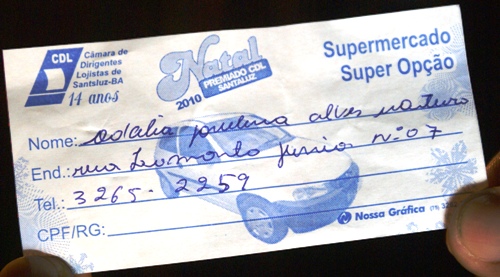 CDL
Câmara de
Dirigentes
Lojistas de
Santsluz-BA
14 anos
Natal
2010
PREMIADO CDL
SANTALUZ
Supermercado
Super Opção
Nome: odalia paulina alves
End.: rua Lomanto Junior nº 07
Tel.: 3265-2259
CPF/RG:
Nossa Gráfica